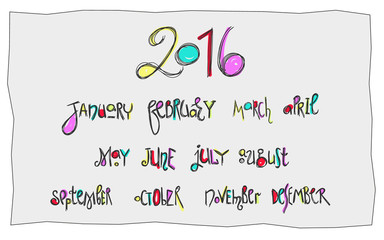 2016
January February march april
may June July august
september october november Desember